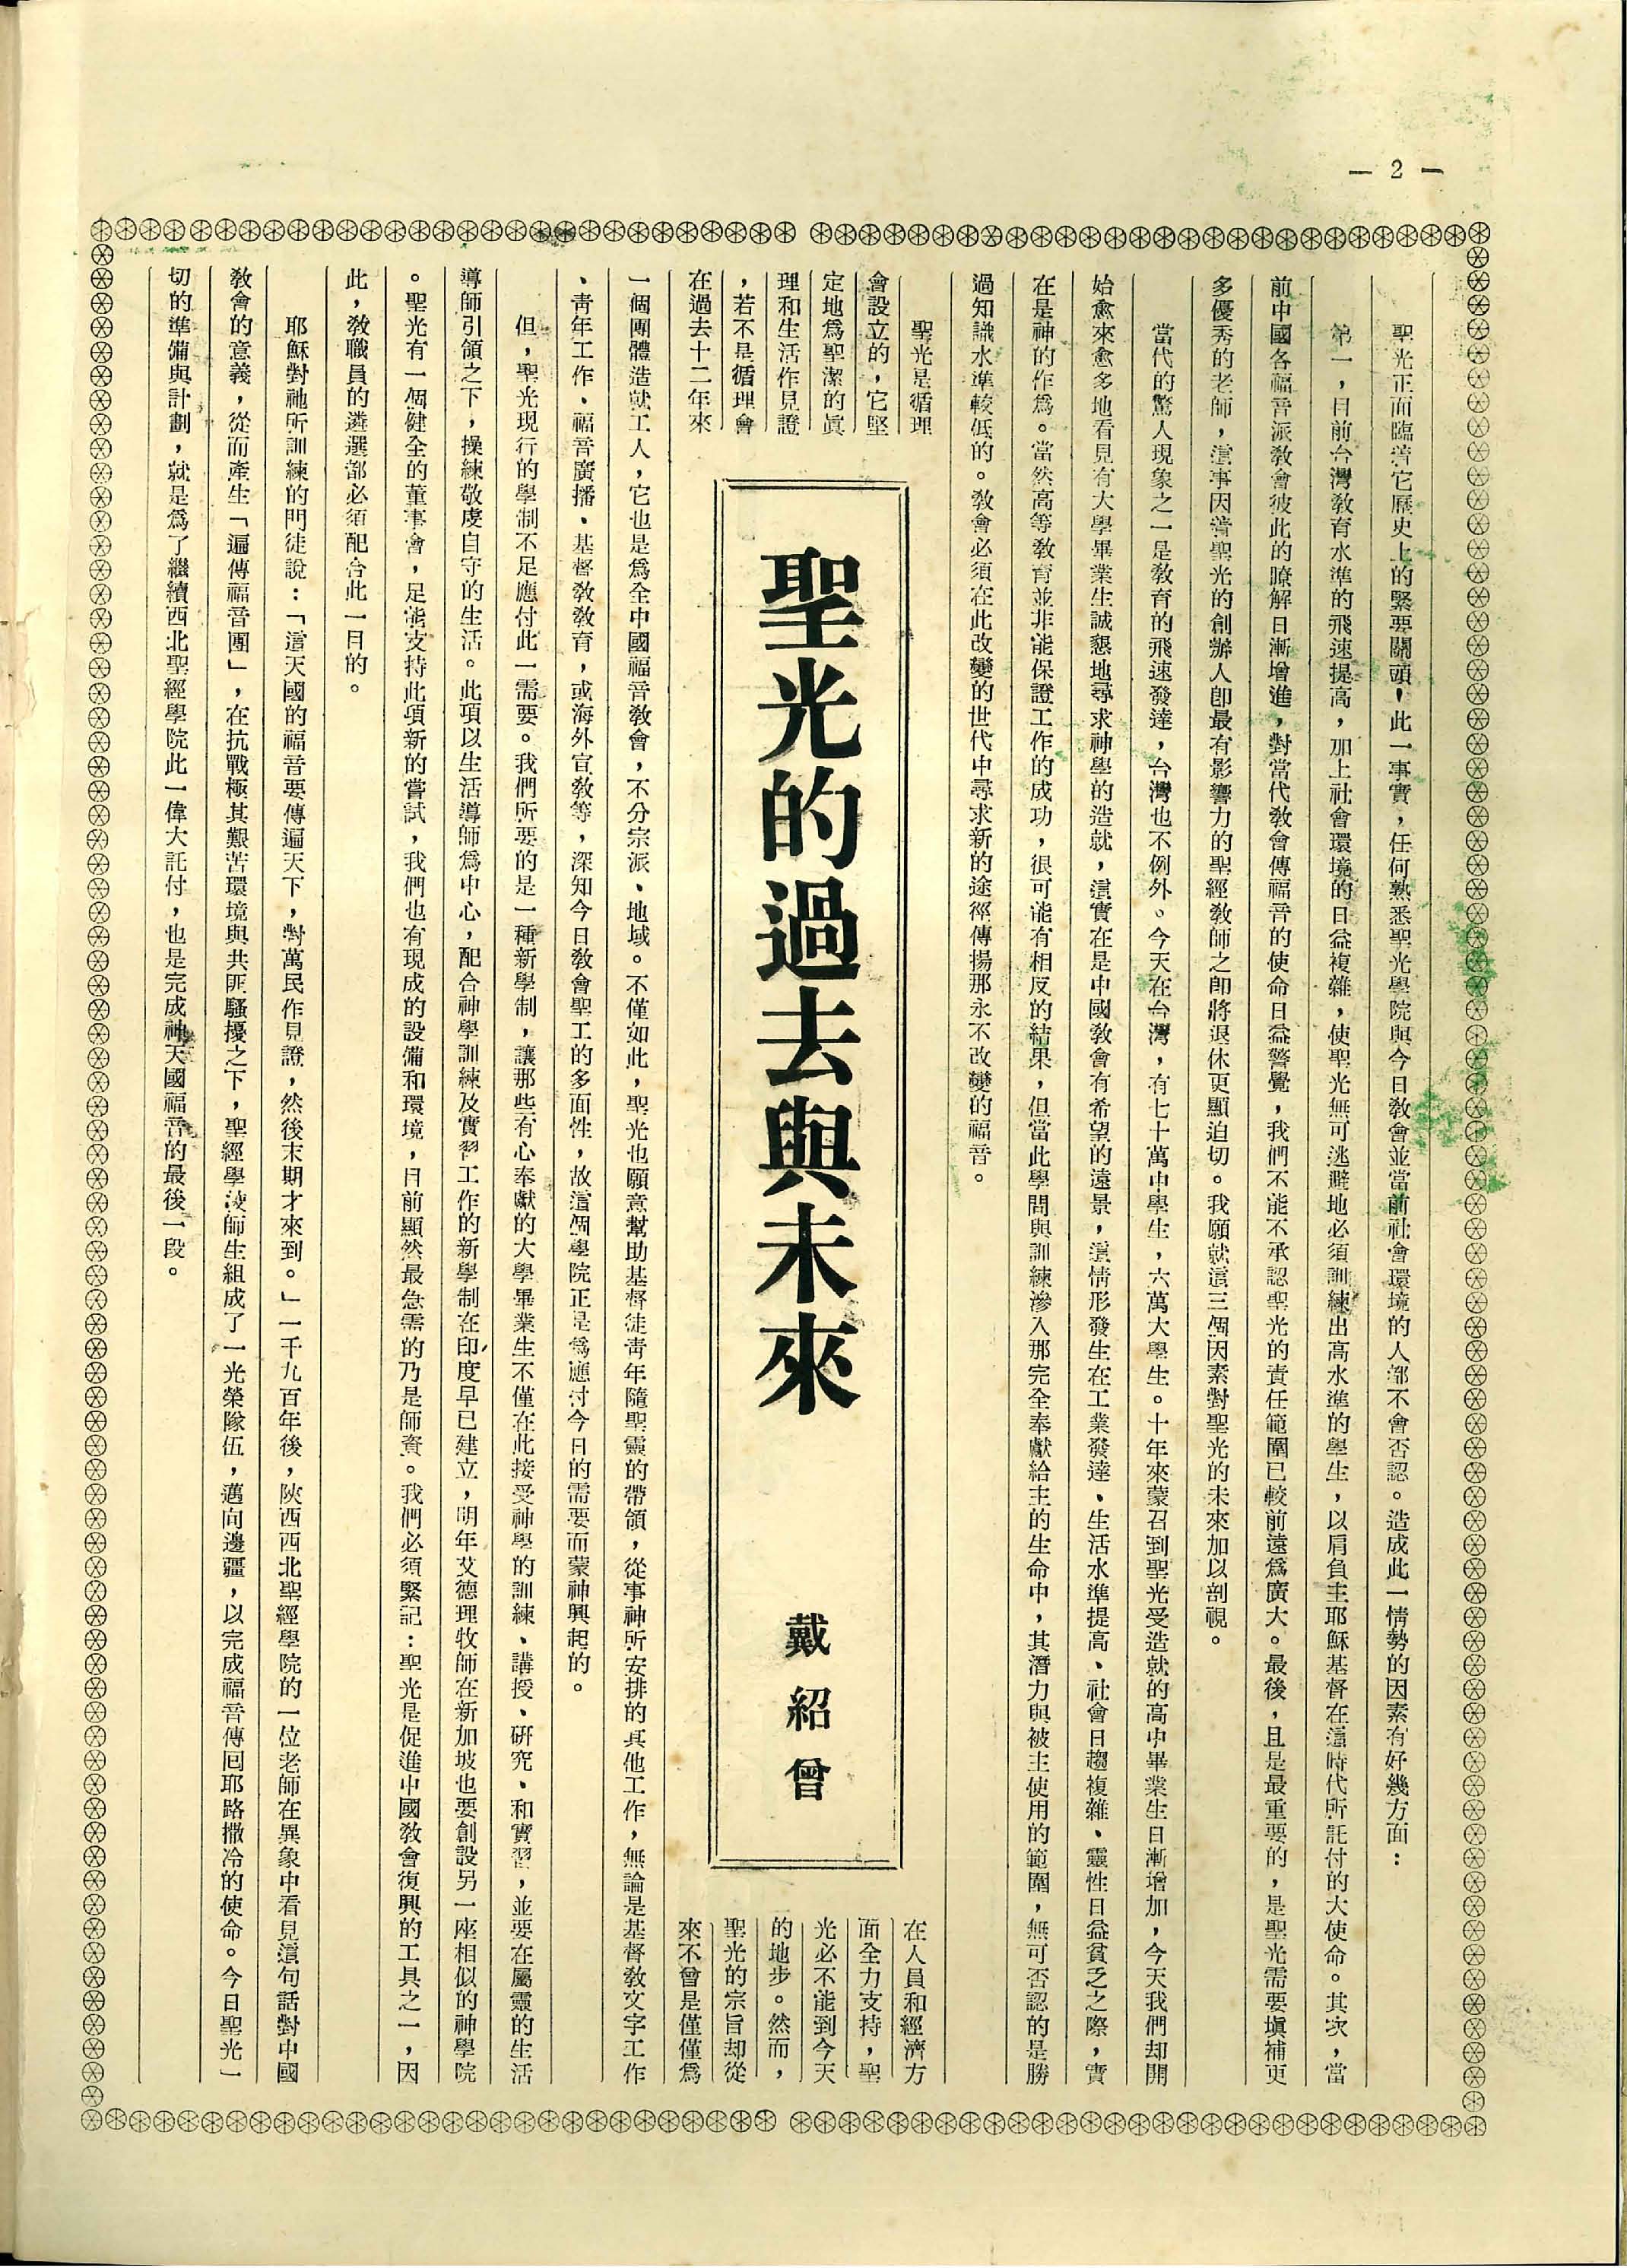 — 2 —
聖光正面臨着它歷史上的緊要關頭！此一事實，任何熟悉聖光學院與今日教會並當前社會環境的人都不會否認。造成此一情勢的因素有好幾方面：
第一，目前台灣教育水準的飛速提高，加上社會環境的日益複雜，使聖光無可逃避地必須訓練出高水準的學生，以肩負主耶穌基督在這時代所託付的大使命。其次，當
前中國各福音派教會彼此的瞭解日漸增進，對當代教會傳福音的使命日益警覺，我們不能不承認聖光的責任範圍已較前遠爲廣大。最後，且是最重要的，是聖光需要填補更
多優秀的老師，這事因着聖光的創辦人卽最有影響力的聖經教師之卽將退休更顯迫切。我願就這三個因素對聖光的未來加以剖視。
當代的驚人現象之一是教育的飛速發達，台灣也不例外。今天在台灣，有七十萬中學生，六萬大學生。十年來蒙召到聖光受造就的高中畢業生日漸增加，今天我們却開
始愈來愈多地看見有大學畢業生誠懇地尋求神學的造就，這實在是中國教會有希望的遠景，這情形發生在工業發達、生活水準提高、社會日趨複雜、靈性日益貧乏之際，實
在是神的作爲。當然高等教育並非能保證工作的成功，很可能有相反的結果，但當此學問與訓練滲入那完全奉獻給主的生命中，其潛力與被主使用的範圍，無可否認的是勝
過知識水準較低的。教會必須在此改變的世代中尋求新的途徑傳揚那永不改變的福音。
聖光的過去與未來
戴紹曾
聖光是循理
會設立的，它堅
定地爲聖潔的眞
理和生活作見證
，若不是循理會
在過去十二年來
在人員和經濟方
面全力支持，聖
光必不能到今天
的地步。然而，
聖光的宗旨却從
來不曾是僅僅爲
一個團體造就工人，它也是爲全中國福音教會，不分宗派、地域。不僅如此，聖光也願意幫助基督徒青年隨聖靈的帶領，從事神所安排的其他工作，無論是基督教文字工作
、青年工作、福音廣播、基督教教育，或海外宣教等，深知今日教會聖工的多面性，故這個學院正是爲應付今日的需要而蒙神興起的。
但，聖光現行的學制不足應付此一需要。我們所要的是一種新學制，讓那些有心奉獻的大學畢業生不僅在此接受神學的訓練、講授、研究、和實習，並要在屬靈的生活
導師引領之下，操練敬虔自守的生活。此項以生活導師爲中心，配合神學訓練及實習工作的新學制在印度早已建立，明年艾德理牧師在新加坡也要創設另一座相似的神學院
。聖光有一個健全的董事會，足能支持此項新的嘗試，我們也有現成的設備和環境，目前顯然最急需的乃是師資。我們必須緊記：聖光是促進中國教會復興的工具之一，因
此，教職員的遴選都必須配合此一目的。
耶穌對祂所訓練的門徒說：「這天國的福音要傳遍天下，對萬民作見證，然後末期才來到。」一千九百年後，陝西西北聖經學院的一位老師在異象中看見這句話對中國
教會的意義，從而產生「遍傳福音團」，在抗戰極其艱苦環境與共匪騷擾之下，聖經學校師生組成了一光榮隊伍，邁向邊疆，以完成福音傳回耶路撒冷的使命。今日聖光一
切的準備與計劃，就是爲了繼續西北聖經學院此一偉大託付，也是完成神天國福音的最後一段。